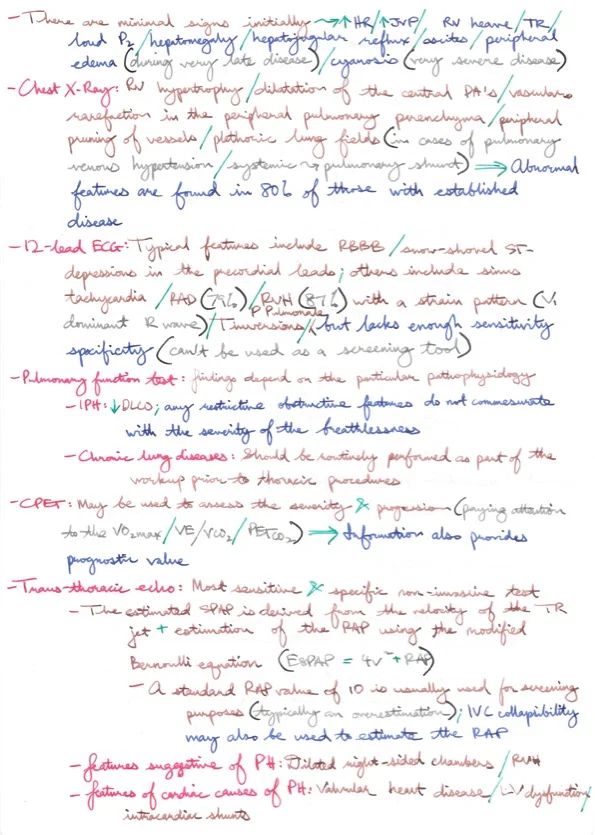 - There are minimal signs initially → ↑HR/↑JVP/ RV heave/TR/
loud P2/hepatomegaly/hepatojugular reflux/ascites/peripheral
edema (during very late disease)/cyanosis (very severe disease)
- Chest X-Ray: RV hypertrophy/dilatation of the central PA's/vascular
rarefaction in the peripheral pulmonary parenchyma/peripheral
pruning of vessels/plethoric lung fields (in cases of pulmonary
venous hypertension/systemic → pulmonary shunt) ⇒ Abnormal
features are found in 80% of those with established
disease
- 12-lead ECG: Typical features include RBBB/snow-shovel ST-
depressions in the precordial leads; others include sinus
tachycardia/RAD (79%)/RVH (87%) with a strain pattern (V1
P Pulmonale
dominant R wave)/T inversions/, but lacks enough sensitivity
specificity (can't be used as a screening tool)
- Pulmonary function test: findings depend on the particular pathophysiology
- IPH: ↓DLCO; any restrictive obstructive features do not commesurate
with the severity of the breathlessness
- Chronic lung diseases: Should be routinely performed as part of the
workup prior to thoracic procedures
- CPET: May be used to assess the severity & progression (paying attention
to the VO2max/VE/VCO2/PETCO2) ⇒ Information also provides
prognostic value
- Trans-thoracic echo: Most sensitive & specific non-invasive test
- The estimated SPAP is derived from the velocity of the TR
jet + estimation of the RAP using the modified
Bernoulli equation (ESPAP = 4v² + RAP)
- A standard RAP value of 10 is usually used for screening
purposes (typically an overestimation); IVC collapibility
may also be used to estimate the RAP
- features suggestive of PH: Dilated right-sided chambers/RVH
- features of cardiac causes of PH: Valvular heart disease/LV dysfunction/
intracardiac shunts